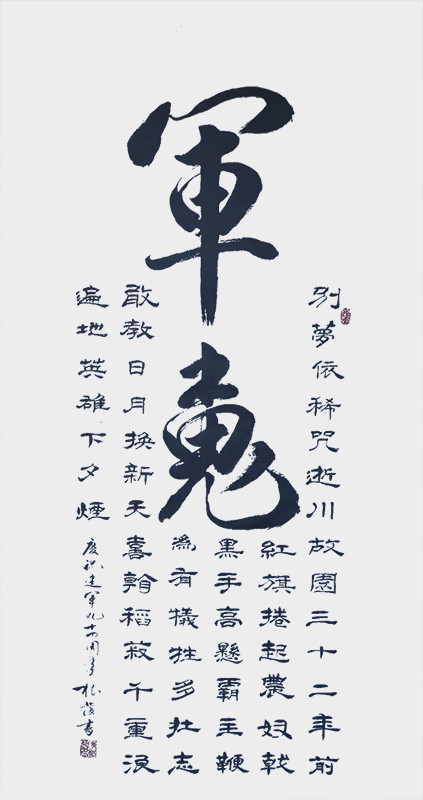 軍魂
別夢依稀咒逝川故園三十二年前
紅旗捲起農奴戟
黑手高懸霸主鞭
為有犧牲多壯志
敢教日月換新天喜看稻菽千重浪
遍地英雄下夕煙
慶祝建軍九十四周年 書